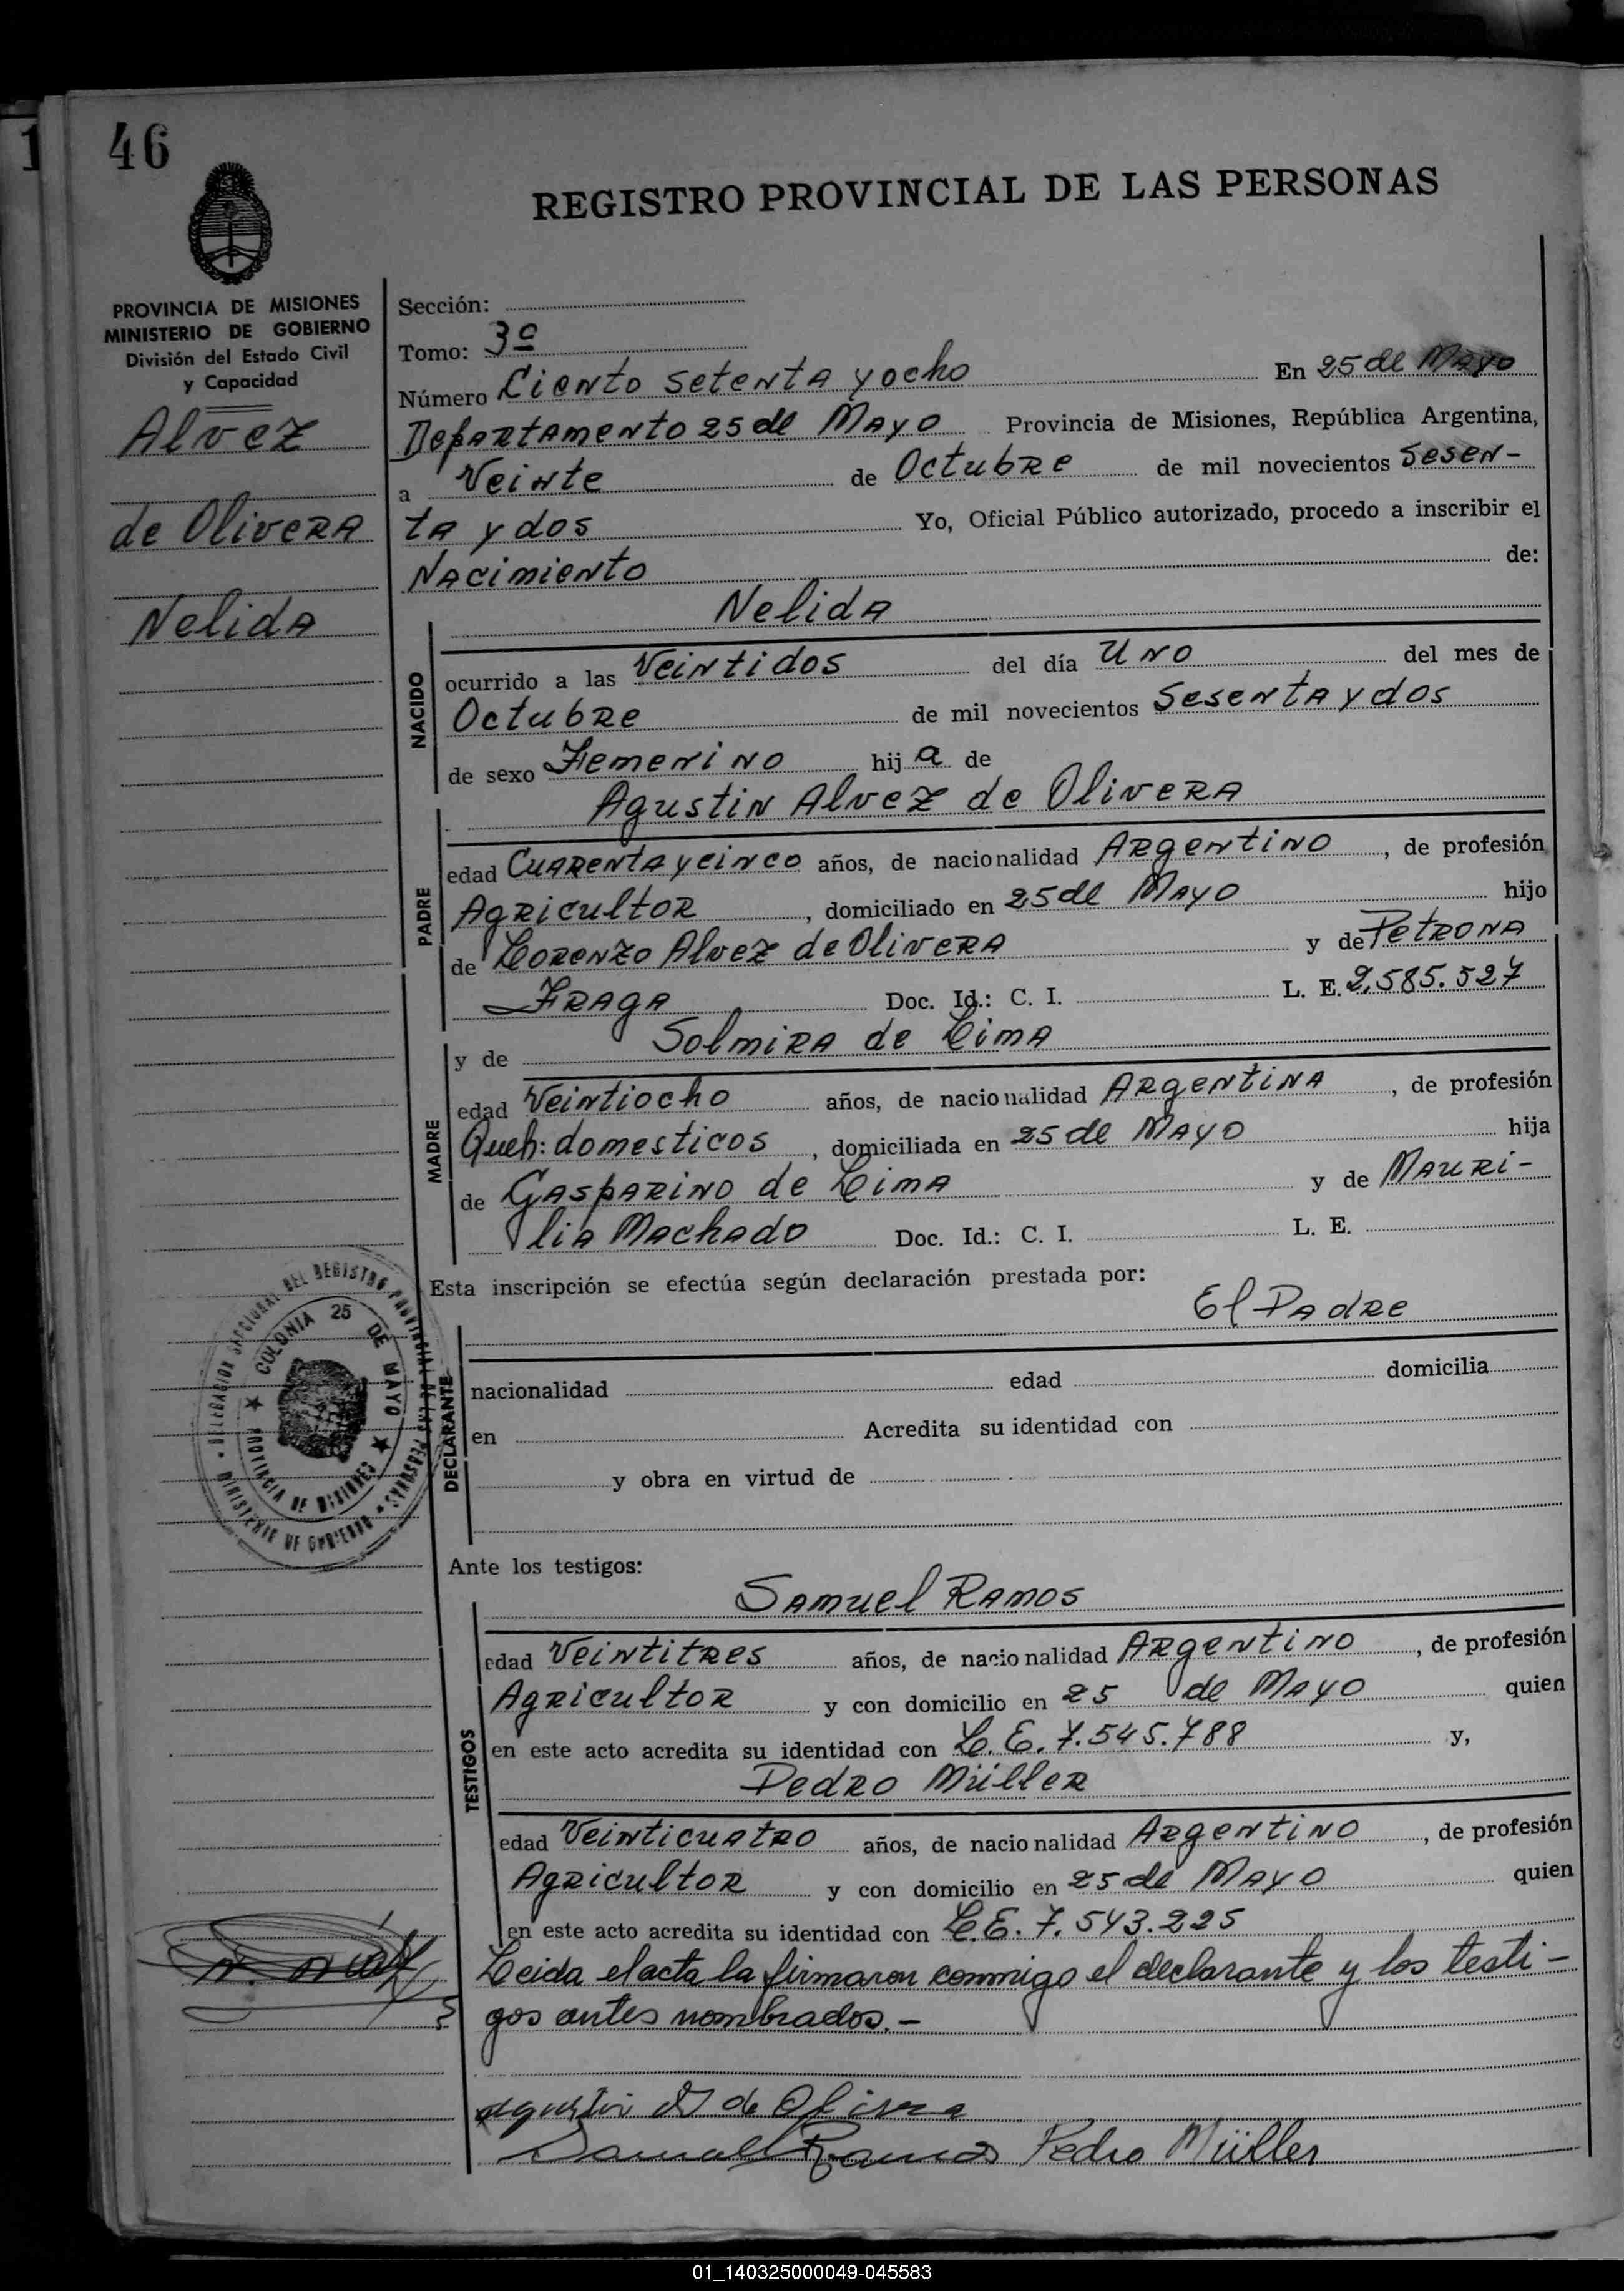 46
REGISTRO PROVINCIAL DE LAS PERSONAS
PROVINCIA DE MISIONES
MINISTERIO DE GOBIERNO
División del Estado Civil
y Capacidad
Alvez
de Olivera
Nelida
Sección:
Tomo: 3º
Número Ciento setenta y ocho En 25 de Mayo
Departamento 25 de Mayo Provincia de Misiones, República Argentina,
a Veinte de Octubre de mil novecientos Sesen-
ta y dos Yo, Oficial Público autorizado, procedo a inscribir el
Nacimiento de:
Nelida
NACIDO
ocurrido a las Veintidos del día Uno del mes de
Octubre de mil novecientos Sesenta y dos
de sexo Femenino hija de
Agustin Alvez de Olivera
PADRE
edad Cuarenta y cinco años, de nacionalidad Argentino, de profesión
Agricultor, domiciliado en 25 de Mayo hijo
de Lorenzo Alvez de Olivera y de Petrona
Fraga Doc. Id.: C. I. L. E. 2.585.527
y de Solmira de Lima
MADRE
edad Veintiocho años, de nacionalidad Argentina, de profesión
Queh: domesticos, domiciliada en 25 de Mayo hija
de Gasparino de Lima y de Mauri-
lia Machado Doc. Id.: C. I. L. E.
Esta inscripción se efectúa según declaración prestada por:
El Padre
DECLARANTE
nacionalidad edad domicilia
en Acredita su identidad con
y obra en virtud de
DELEGACION SECCIONAL DEL REGISTRO PROVINCIAL DE LAS PERSONAS
MINISTERIO DE GOBIERNO
COLONIA 25 DE MAYO
PROVINCIA DE MISIONES
Ante los testigos:
Samuel Ramos
TESTIGOS
edad Veintitres años, de nacionalidad Argentino, de profesión
Agricultor y con domicilio en 25 de Mayo quien
en este acto acredita su identidad con L.E. 7.545.788 y,
Pedro Müller
edad Veinticuatro años, de nacionalidad Argentino, de profesión
Agricultor y con domicilio en 25 de Mayo quien
en este acto acredita su identidad con L.E. 7.543.225
Leida el acta la firmaron conmigo el declarante y los testi-
gos antes nombrados.-
agustin A de Olivera
Samuel Ramos Pedro Müller
01_140325000049-045583